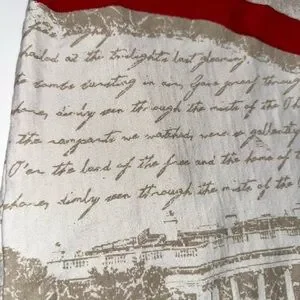 hailed at the twilight's last gleaming
bombs bursting in air, Gave proof through
shore, dimly seen through the mists of the
the ramparts we watched, were so gallantly
O'er the land of the free and the home of
shore, dimly seen through the mists of the